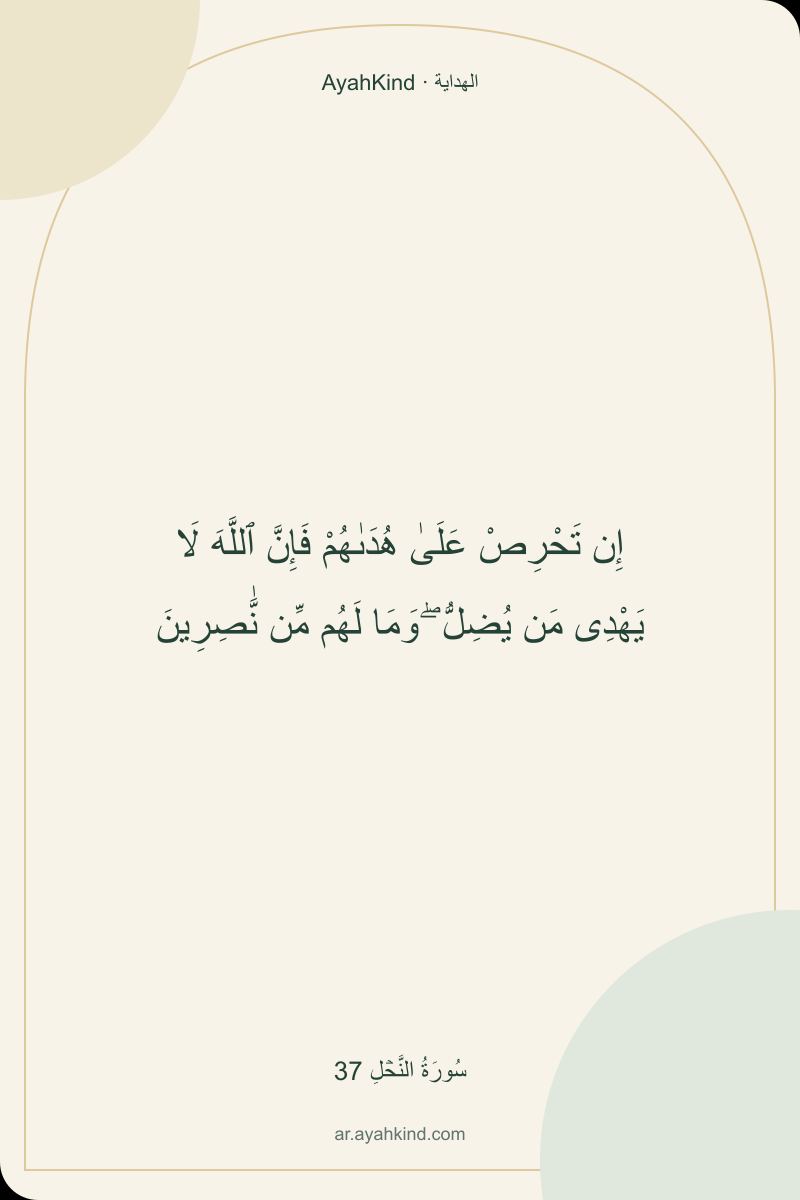 الهداية · AyahKind
إِن تَحْرِصْ عَلَىٰ هُدَىٰهُمْ فَإِنَّ ٱللَّهَ لَا
يَهْدِى مَن يُضِلُّ ۖ وَمَا لَهُم مِّن نَّٰصِرِينَ
سُورَةُ النَّحۡلِ 37
ar.ayahkind.com